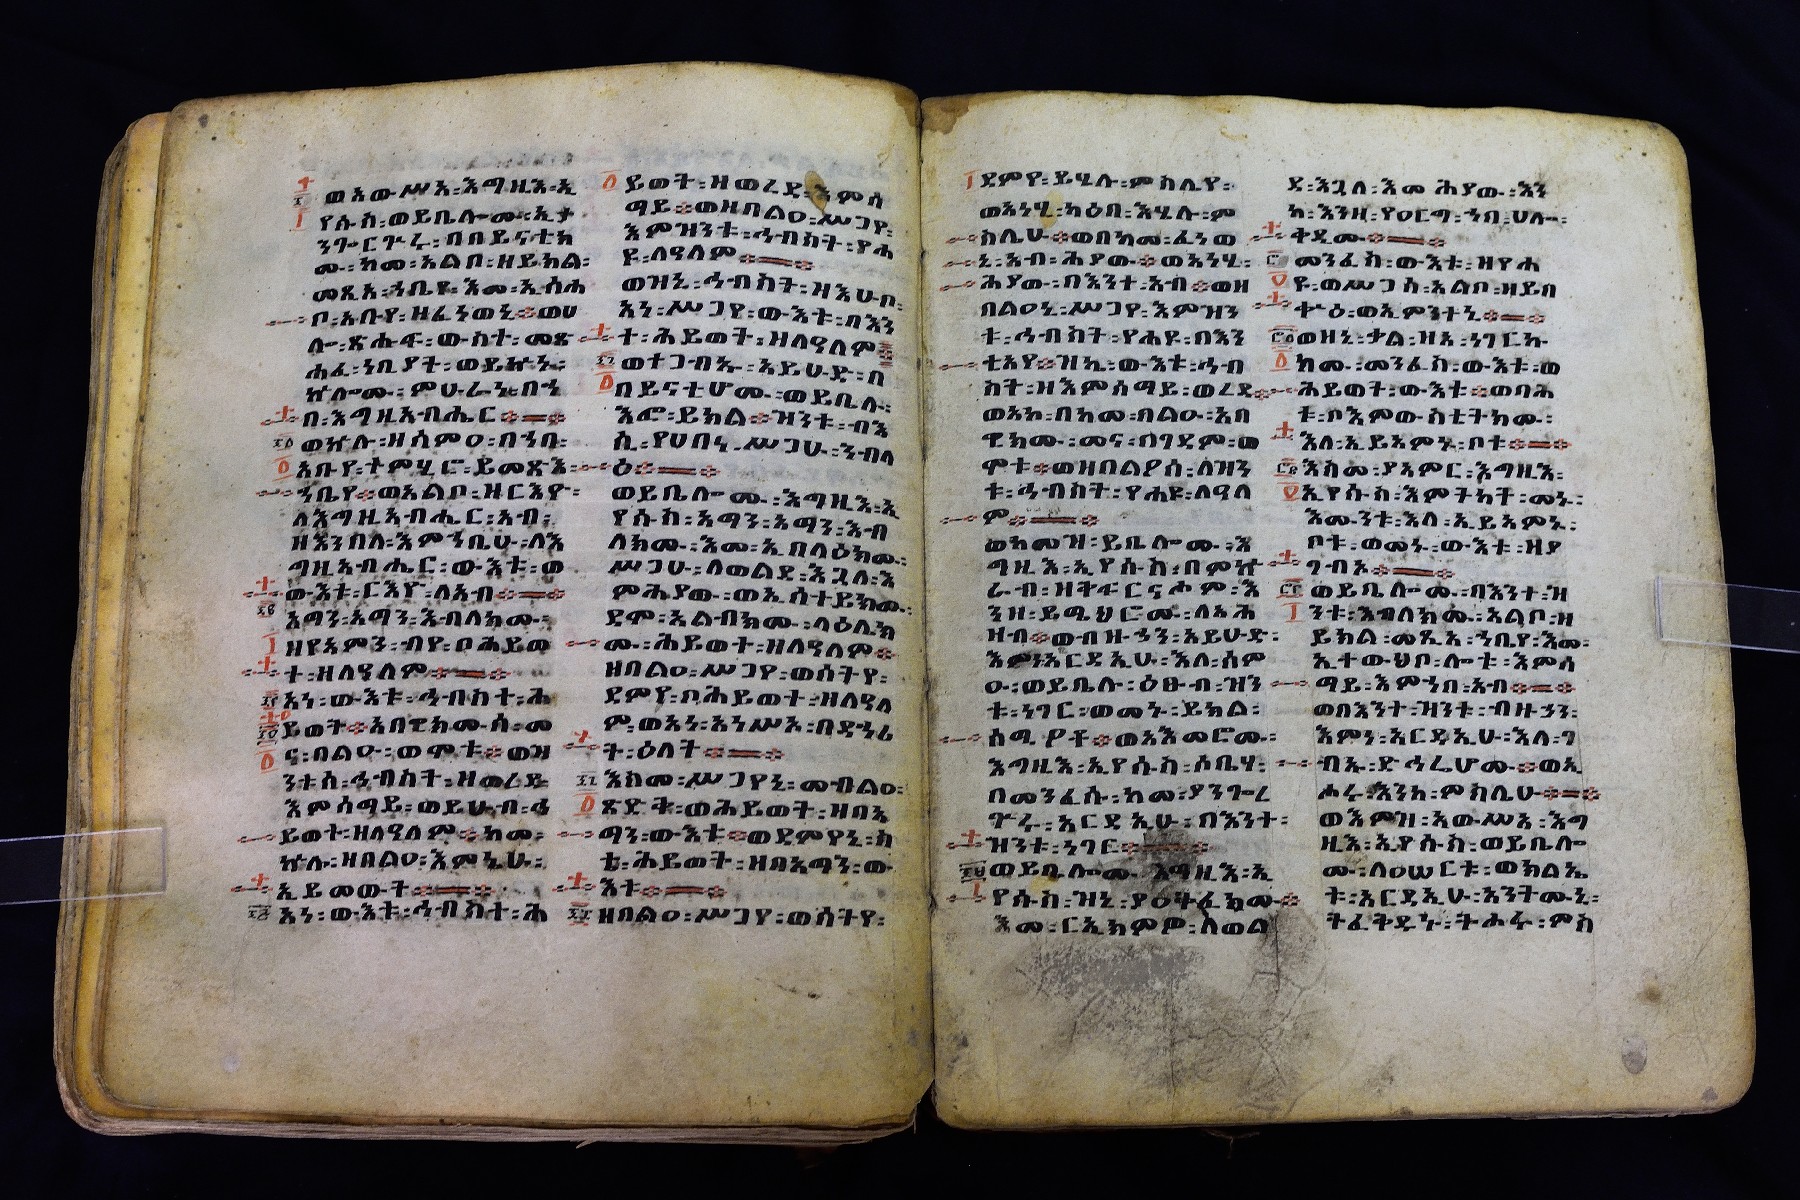 ወአውሥአ፡እግዚእ፡ኢ
የሱስ፡ወይቤሎሙ፡ኢታ
ንጐርጕሩ፡በበይናቲክ
ሙ፡ከመ፡አልቦ፡ዘይክል፡
መጺአ፡ኀቤየ፡እመ፡ኢሰሐ
ቦ፡አቡየ፡ዘፈነወኒ፡ወሀ
ሎ፡ጽሑፍ፡ውስተ፡መጽ
ሐፈ፡ነቢያት፡ወይኩኑ፡
ኵሎሙ፡ምሁራነ፡በኀ
በ፡እግዚአብሔር።
ወኵሉ፡ዘሰምዐ፡በኀበ፡
አቡየ፡ተምሂሮ፡ይመጽእ፡
ኀቤየ፡ወአልቦ፡ዘርእዮ፡
ለእግዚአብሔር፡አብ፡
ዘእንበለ፡እምኀቤሁ፡ለእ
ግዚአብሔር፡ውእቱ፡ወ
ውእቱ፡ርእዮ፡ለአብ።
አማን፡አማን፡እብለክሙ፡
ዘየአምን፡ብየ፡ቦሕይወ
ት፡ዘለዓለም።
አነ፡ውእቱ፡ኅብስተ፡ሕ
ይወት፡አበዊክሙ፡ሰ፡መ
ና፡በልዑ፡ወሞቱ፡ወዝ
ንተሰ፡ኅብስት፡ዘወረደ፡
እምሰማይ፡ወይሁብ፡ሕ
ይወት፡ዘለዓለም፡ከመ፡
ኵሉ፡ዘበልዐ፡እምኔሁ፡
ኢይመውት።
አነ፡ውእቱ፡ኅብስተ፡ሕ
ይወት፡ዘወረደ፡እምሰ
ማይ፡ወዘበልዐ፡ሥጋየ፡
እምዝንቱ፡ኅብስት፡የሐ
ዩ፡ለዓለም።
ወዝኒ፡ኅብስት፡ዘእሁቦ፡
አነ፡ሥጋየ፡ውእቱ፡በእን
ተ፡ሕይወት፡ዘለዓለም።
ወተጋብኡ፡አይሁድ፡በ
በይናቲሆሙ፡ወይቤሉ፡
እፎ፡ይክል፡ዝንቱ፡ብእ
ሲ፡የሀበነ፡ሥጋሁ፡ንብላ
ዕ።
ወይቤሎሙ፡እግዚእ፡ኢ
የሱስ፡አማን፡አማን፡እብ
ለክሙ፡እመ፡ኢበላዕክሙ፡
ሥጋሁ፡ለወልደ፡እጓለ፡እ
ምሕያው፡ወኢሰተይክሙ፡
ደሞ፡አልብክሙ፡ላዕሌክ
ሙ፡ሕይወት፡ዘለዓለም፡
ዘበልዐ፡ሥጋየ፡ወሰትየ፡
ደምየ፡ቦሕይወት፡ዘለዓለ
ም፡ወአነ፡አነሥኦ፡በደኃሪ
ት፡ዕለት።
እስመ፡ሥጋየኒ፡መብልዐ፡
ጽድቅ፡ወሕይወት፡ዘበአ
ማን፡ውእቱ፡ወደምየኒ፡ስ
ቴ፡ሕይወት፡ዘበአማን፡ው
እቱ።
ዘበልዐ፡ሥጋየ፡ወሰትየ፡
ደምየ፡ይሄሉ፡ምስሌየ፡
ወአነሂ፡ካዕበ፡እሄሉ፡ም
ስሌሁ፡ወበከመ፡ፈነወ
ኒ፡አብ፡ሕያው፡ወአነሂ፡
ሕያው፡በእንተ፡አብ፡ወዘ
በልዐኒ፡ሥጋየ፡እምዝን
ቱ፡ኅብስት፡የሐዩ፡በእን
ቲአየ፡ዝኬ፡ውእቱ፡ኅብ
ስት፡ዘእምሰማይ፡ወረደ፡
ወአኮ፡በከመ፡በልዑ፡አበ
ዊክሙ፡መና፡በገዳም፡ወ
ሞቱ፡ወዘበልዖሰ፡ለዝን
ቱ፡ኅብስት፡የሐዩ፡ለዓለ
ም።
ወከመዝ፡ይቤሎሙ፡እ
ግዚእ፡ኢየሱስ፡በምኵ
ራብ፡ዘቅፍርናሆም፡እ
ንዘ፡ይሜህሮሙ፡ለአሕ
ዛብ፡ወብዙኃን፡አይሁድ፡
እምአርዳኢሁ፡እለ፡ሰም
ዑ፡ወይቤሉ፡ዕፁብ፡ዝን
ቱ፡ነገር፡ወመኑ፡ይክል፡
ሰሚዖቶ፡ወአእመሮሙ፡
እግዚእ፡ኢየሱስ፡ሶቤሃ፡
በመንፈሱ፡ከመ፡ያንጐረ
ጕሩ፡አርዳኢሁ፡በእንተ፡
ዝንቱ፡ነገር።
ወይቤሎሙ፡እግዚእ፡ኢ
የሱስ፡ዝኒ፡ያዐቅፈክሙ፡
እመ፡ርኢክምዎ፡ለወል
ደ፡እጓለ፡እመ ሕያው፡እን
ከ፡እንዘ፡የዐርግ፡ኀበ፡ሀሎ፡
ቀዲሙ።
መንፈስ፡ውእቱ፡ዘየሐ
ዩ፡ወሥጋሰ፡አልቦ፡ዘይበ
ቍዕ፡ወኢምንተኒ።
ወዘኒ፡ቃል፡ዘአነ፡ነገርኩ
ክሙ፡መንፈስ፡ውእቱ፡ወ
ሕይወት፡ውእቱ፡ወባሕ
ቱ፡ቦእምውስቴትክሙ፡
እለ፡ኢይአምኑ፡ቦቱ።
እስመ፡ያአምር፡እግዚእ፡
ኢየሱስ፡እምትካት፡መኑ፡
እሙንቱ፡እለ፡ኢይአምኑ፡
ቦቱ፡ወመኑ፡ውእቱ፡ዘያ
ገብኦ።
ወይቤሎሙ፡በእንተ፡ዝ
ንቱ፡እብለክሙ፡አልቦ፡ዘ
ይክል፡መጺአ፡ኀቤየ፡እመ፡
ኢተውህቦ፡ሎቱ፡እምሰ
ማይ፡እምኀበ፡አብ።
ወበእንተ፡ዝንቱ፡ብዙኃን፡
እምነ፡አርዳኢሁ፡እለ፡ገ
ብኡ፡ድኅሬሆሙ፡ወኢ
ሐሩ፡እንከ፡ምስሌሁ።
ወእምዝ፡አውሥአ፡እግ
ዚእ፡ኢየሱስ፡ወይቤሎ
ሙ፡ለዐሠርቱ፡ወክልኤ
ቱ፡አርዳኢሁ፡አንትሙኒ፡
ትፈቅዱኑ፡ትሐሩ፡ምስ